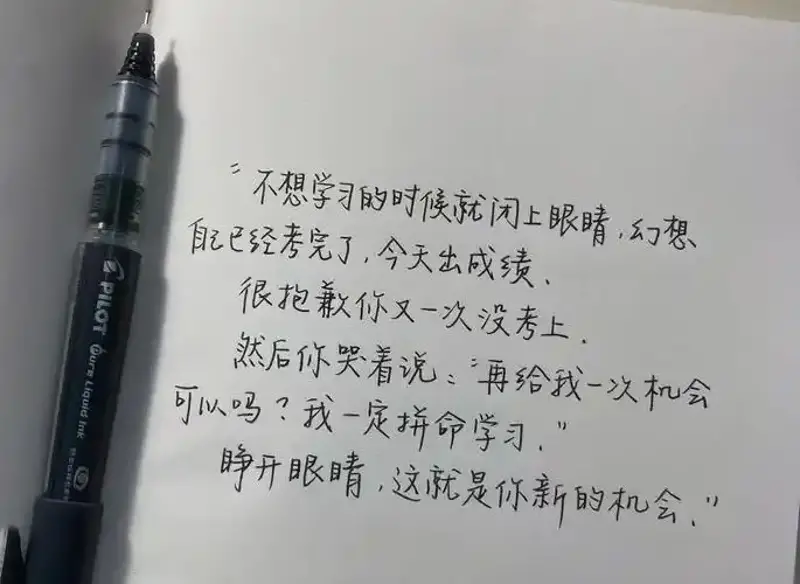 "不想学习的时候就闭上眼睛,幻想
自己已经考完了,今天出成绩.
很抱歉你又一次没考上.
然后你哭着说:"再给我一次机会
可以吗?我一定拼命学习."
睁开眼睛,这就是你新的机会."
PILOT
Pure Liquid Ink